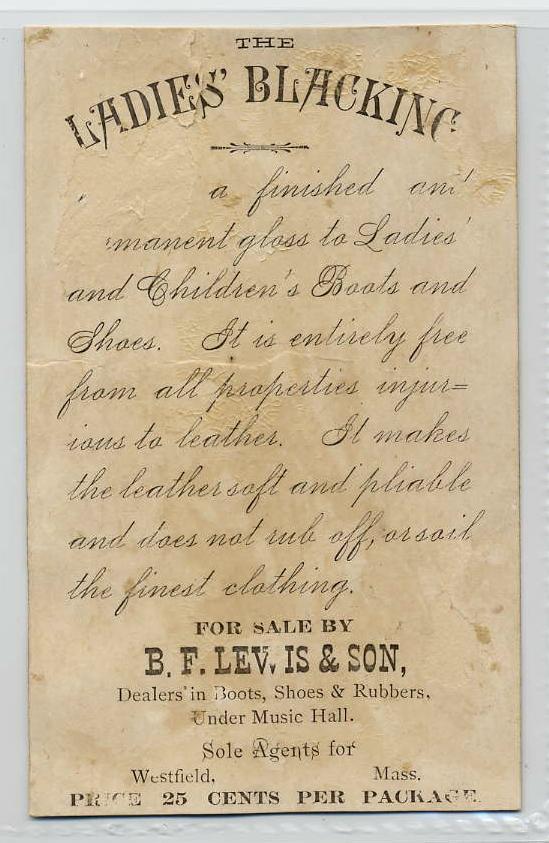 THE
LADIES' BLACKING
a finished and
manent gloss to Ladies'
and Children's Boots and
Shoes. It is entirely free
from all properties injur=
ious to leather. It makes
the leather soft and pliable
and does not rub off, or soil
the finest clothing.
FOR SALE BY
B. F. LEWIS & SON,
Dealers in Boots, Shoes & Rubbers,
Under Music Hall.
Sole Agents for
Westfield, Mass.
PRICE 25 CENTS PER PACKAGE.